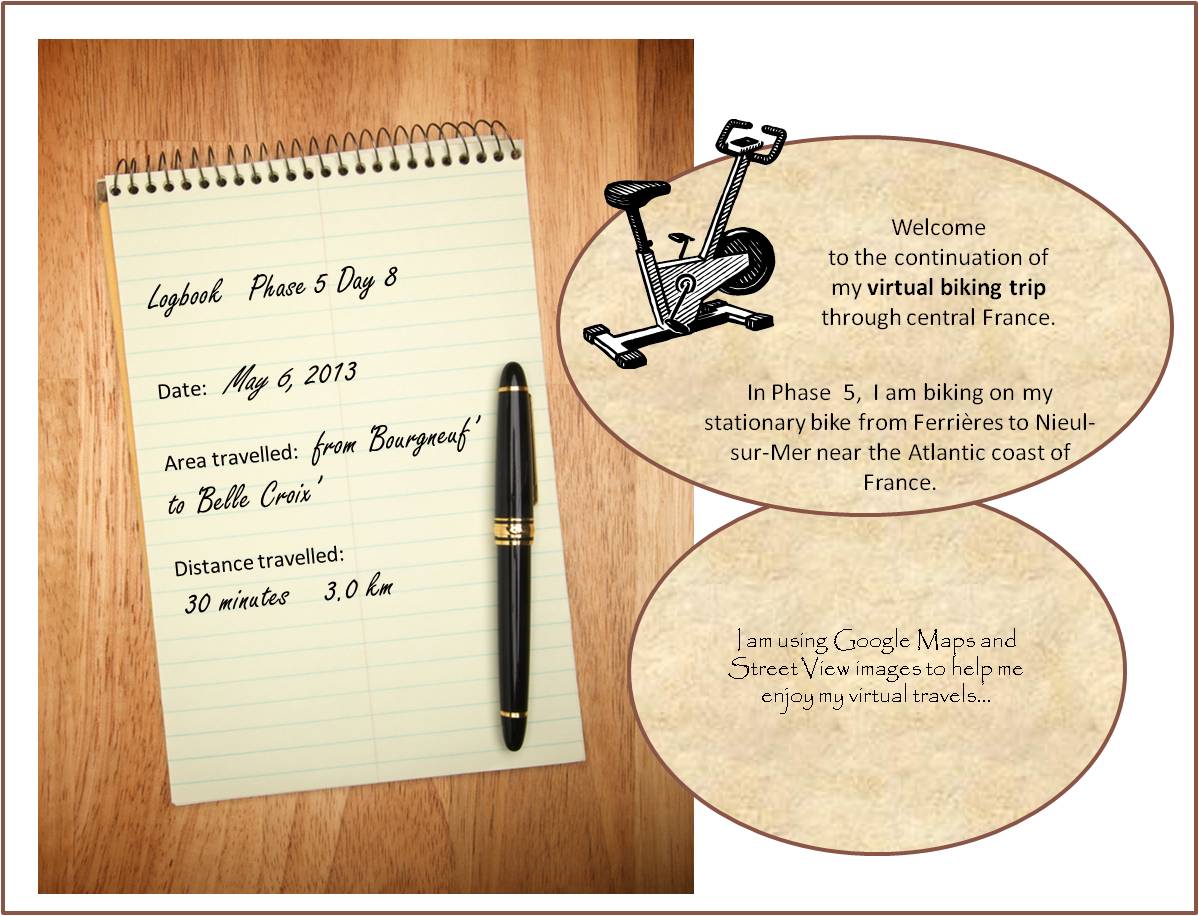 Logbook Phase 5 Day 8
Date: May 6, 2013
Area travelled: from 'Bourgneuf'
to 'Belle Croix'
Distance travelled:
30 minutes 3.0 km
Welcome
to the continuation of
my virtual biking trip
through central France.
In Phase 5, I am biking on my
stationary bike from Ferrières to Nieul-
sur-Mer near the Atlantic coast of
France.
I am using Google Maps and
Street View images to help me
enjoy my virtual travels...